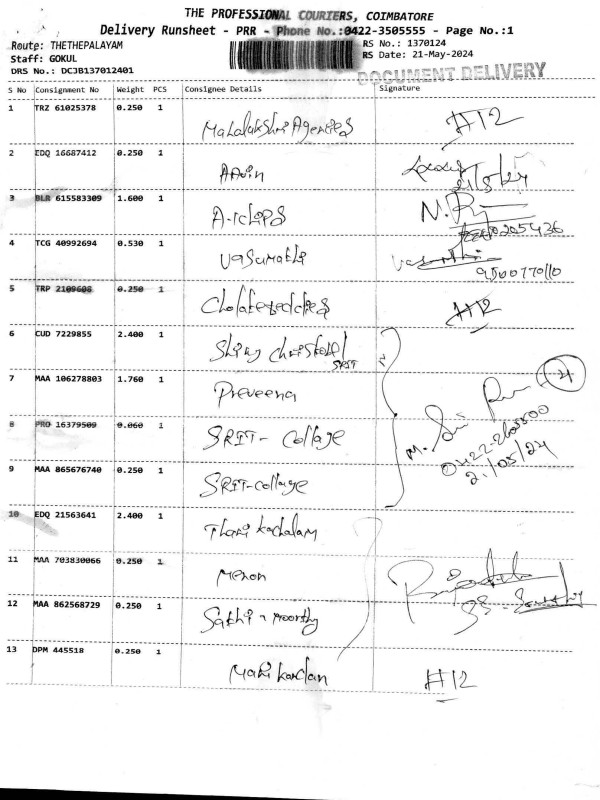 THE PROFESSIONAL COURIERS, COIMBATORE
Delivery Runsheet - PRR - Phone No.:0422-3505555 - Page No.:1
Route: THETHEPALAYAM
RS No.: 1370124
Staff: GOKUL
RS Date: 21-May-2024
DRS No.: DCJB137012401
DOCUMENT DELIVERY
S No Consignment No Weight PCS Consignee Details Signature
1 TRZ 61025378 0.250 1 Mahalakshmi Agencies #12
2 EDQ 16687412 0.250 1 21/5/24
3 BLR 615583309 1.600 1 A-rchips N.R
4 TCG 40992694 0.530 1 Vasumathi
9500770110
5 TRP 2109608 0.250 1 #12
6 CUD 7229855 2.400 1 Shiny
SRIT
7 MAA 106278803 1.760 1 Praveena 4
8 PRO 16379509 0.060 1 SRIT- Collage M.
21/05/24
9 MAA 865676740 0.250 1 SRIT-collage
10 EDQ 21563641 2.400 1
11 MAA 703830066 0.250 1 Menon
12 MAA 862568729 0.250 1 Sakthi - moorthy
13 DPM 445518 0.250 1 Manikandan #12